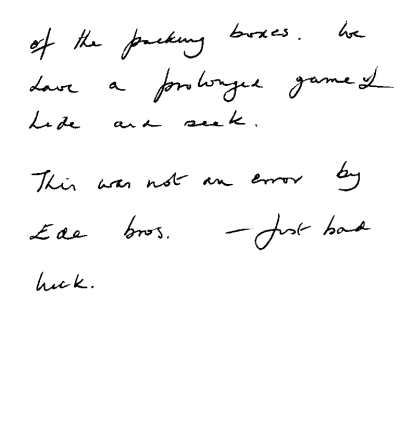 of the packing boxes. We
have a prolonged game of
hide and seek.
This was not an error by
Ede bros. — Just bad
luck.